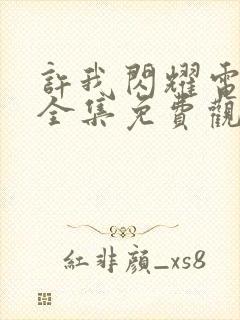 許我閃耀電
全集免費觀
紅非顏_xs8